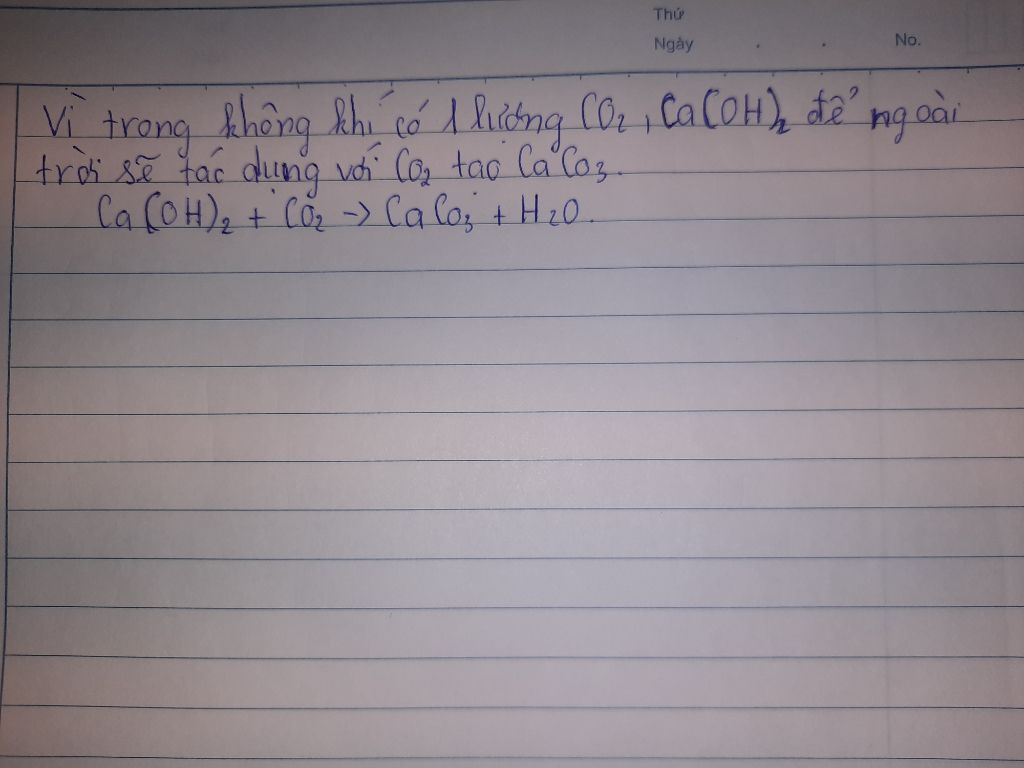 Thứ
Ngày . . No.
Vì trong không khí có 1 lượng CO₂, Ca(OH)₂ để ngoài
trời sẽ tác dụng với CO₂ tạo CaCO₃.
Ca(OH)₂ + CO₂ → CaCO₃ + H₂O.